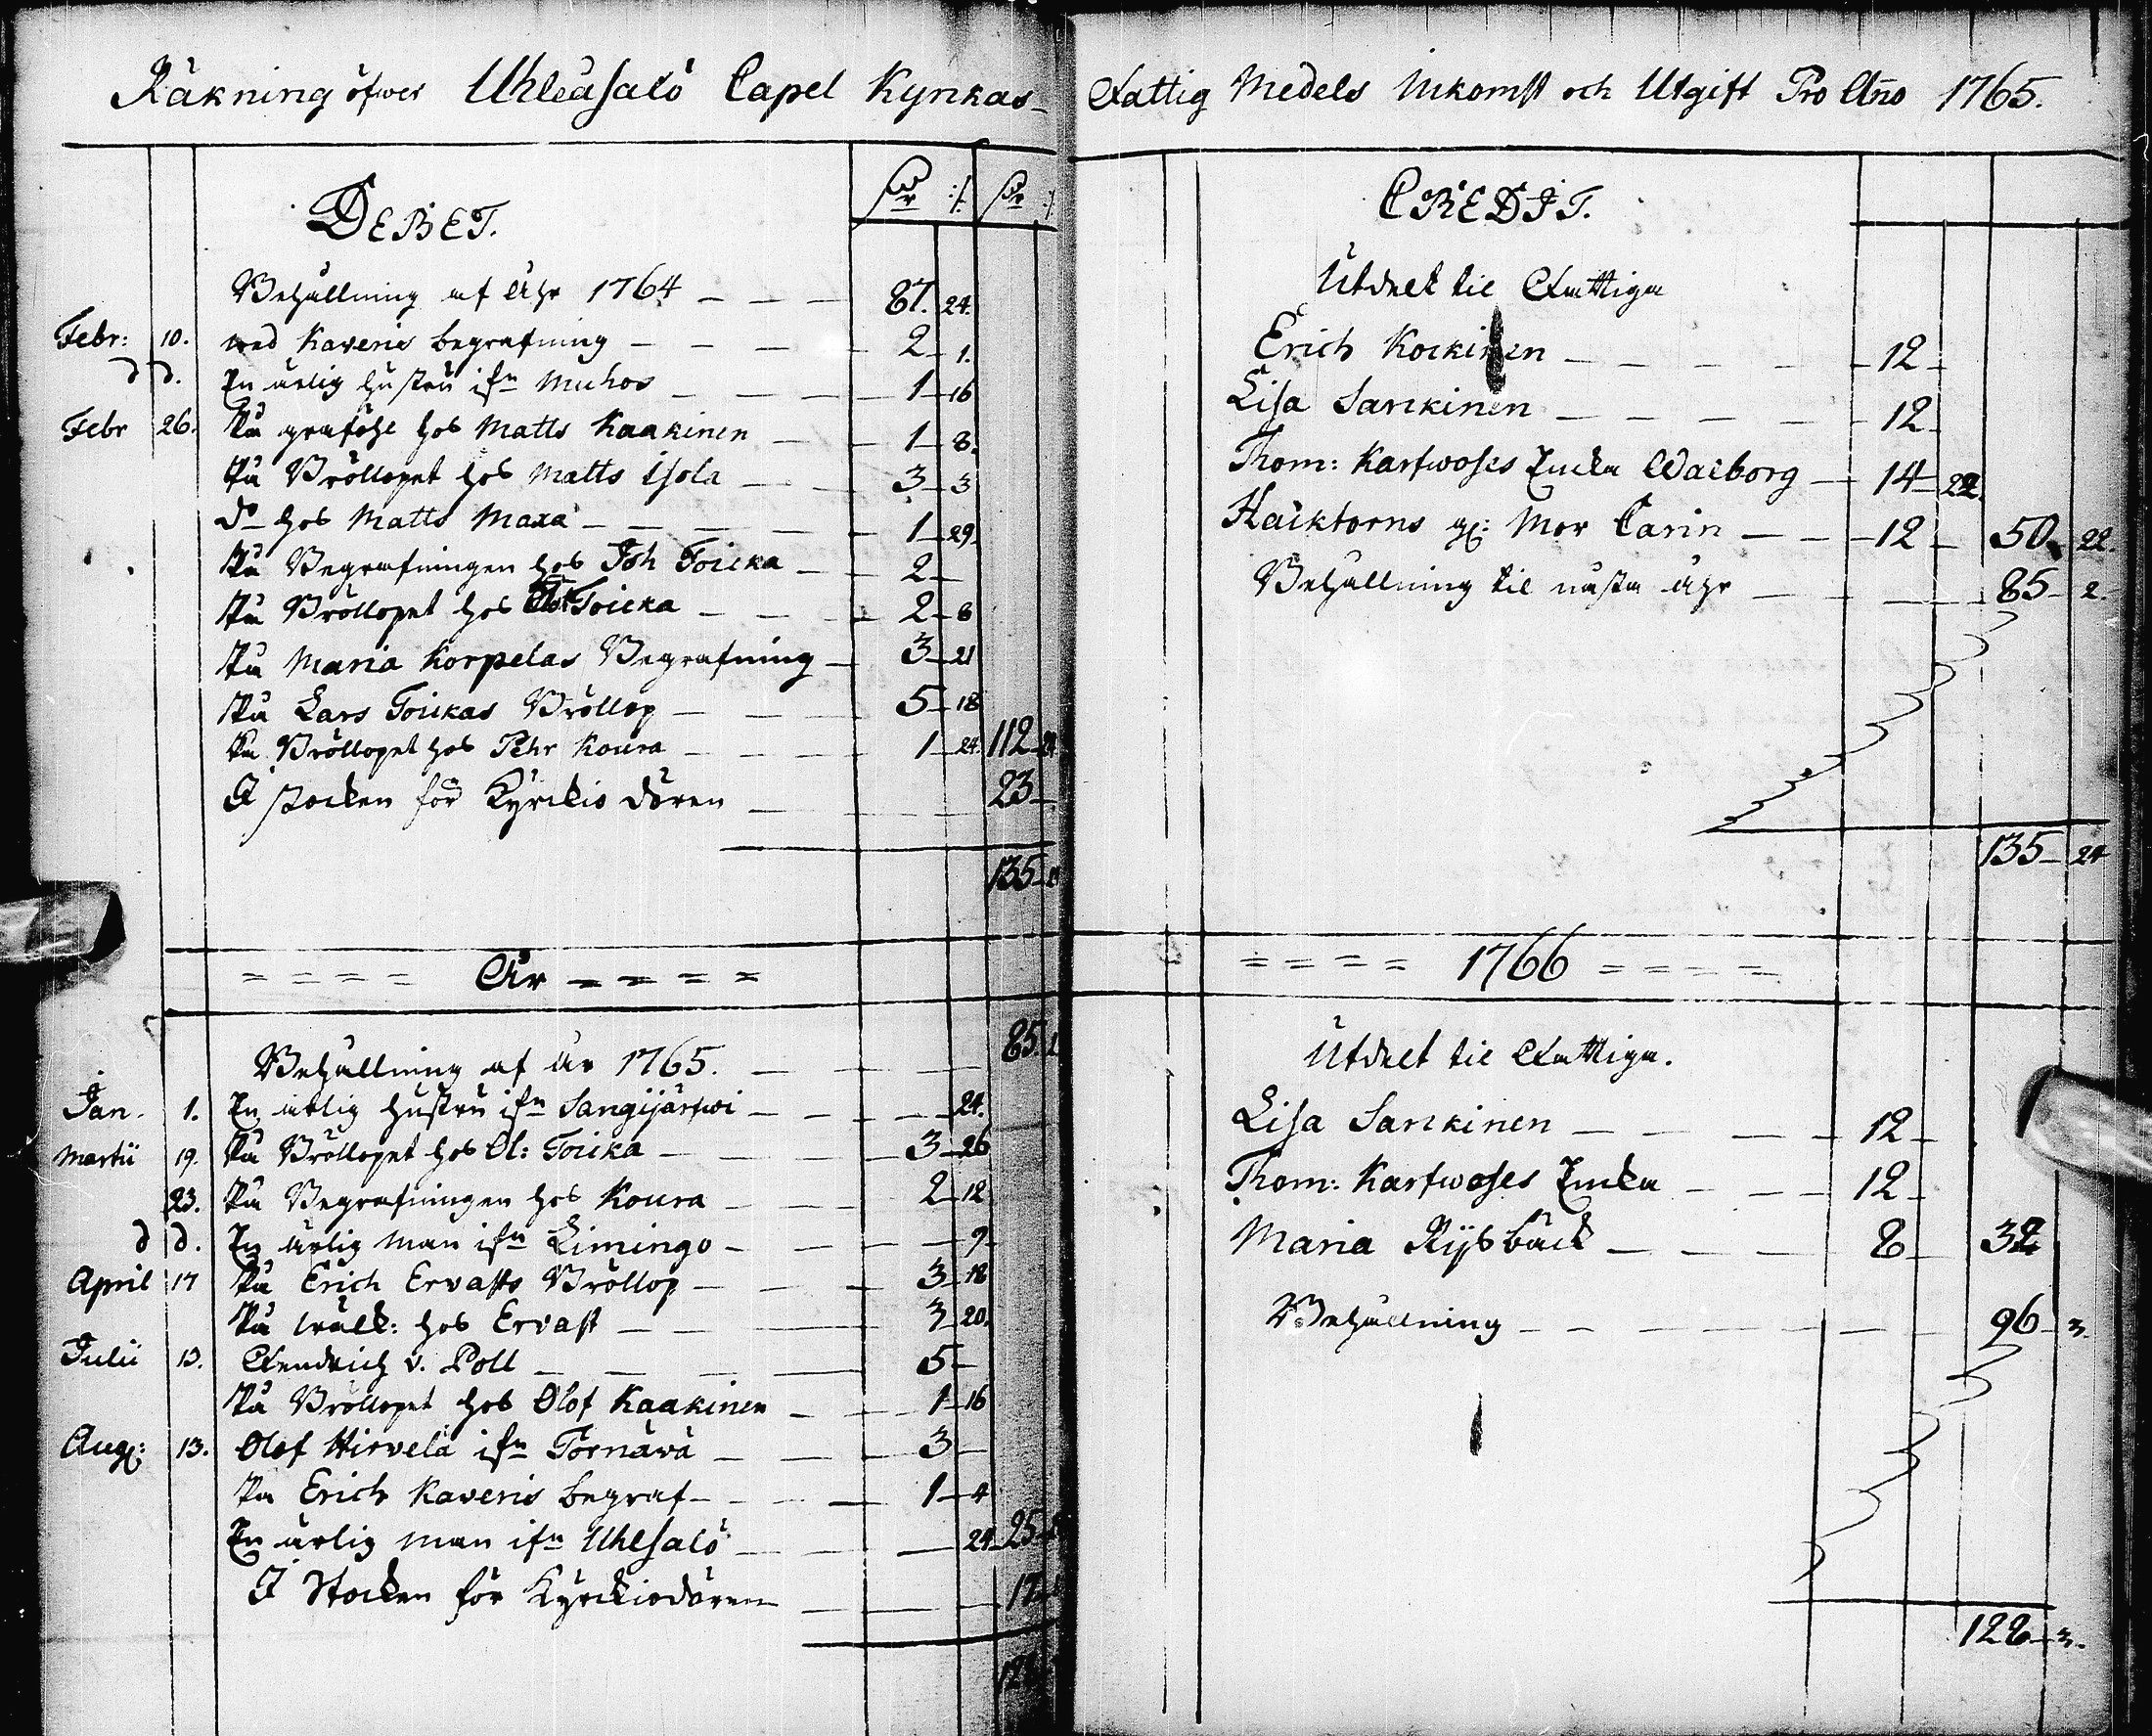 Räkning öfwer Uhleåsalo Capel Kyrkas Fattig Medels Inkomst och Utgift Pro Año 1765.
DEBET.
Behållning af Åhr 1764 — 87. 24.
Febr: 10. wed Kaveris begrafning — 2 — 1.
d d. En ärlig hustru ifn Muhos — 1 — 16
Febr 26. På graföhl hos Matts Kaakinen — 1 — 8.
På Bröllopet hos Matts Isola — 3 — 3
do hos Matts Maxa — 1 — 29.
På Begrafningen hos Joh Toicka — 2 —
På Bröllopet hos Toicka — 2 — 6
På Maria Korpelas Begrafning — 3 — 21
På Lars Toickas Bröllop — 5 — 18
På Bröllopet hos Pehr Koura — 1 — 24. 112 — 24
I stocken för Kyrckio dören — 23 —
135 —
År
Behållning af år 1765. — 85. 2
Jan. 1. En ärlig hustru ifn Sangijärfwi — 24.
Martii 19. På Bröllopet hos Ol: Toicka — 3 — 26
23. På Begrafningen hos Koura — 2 — 12
d d. En ärlig Man ifn Limingo — 9
April 17 På Erich Ervasts Bröllop — 3 — 18
På hos Ervast — 3 — 20.
Julii 13. Fendrich v. Poll — 5 —
På Bröllopet hos Olof Kaakinen — 1 — 16
Aug: 13. Olof Hirvelä ifn Tornäwä — 3 —
På Erich Kaveris begraf — 1 — 4
En ärlig man ifn Uhlsalo — 24 25 —
I Stocken för Kyrckiodören — 17 —
CREDIT.
Utdelt til Fattiga
Erich Kockinen — 12 —
Lisa Sarckinen — 12 —
Thom: Karfwoses Encka Walborg — 14 — 22.
Häcktorns g: Mor Carin — 12 — 50. 22.
Behållning til nästa åhr — 85 — 2.
135 — 24
1766
Utdelt til Fattiga.
Lisa Sarckinen — 12 —
Thom: Karfwoses Encka — 12 —
Maria Rijsbäck — 8 — 32
Behållning — 96 — 3.
128 — 3.